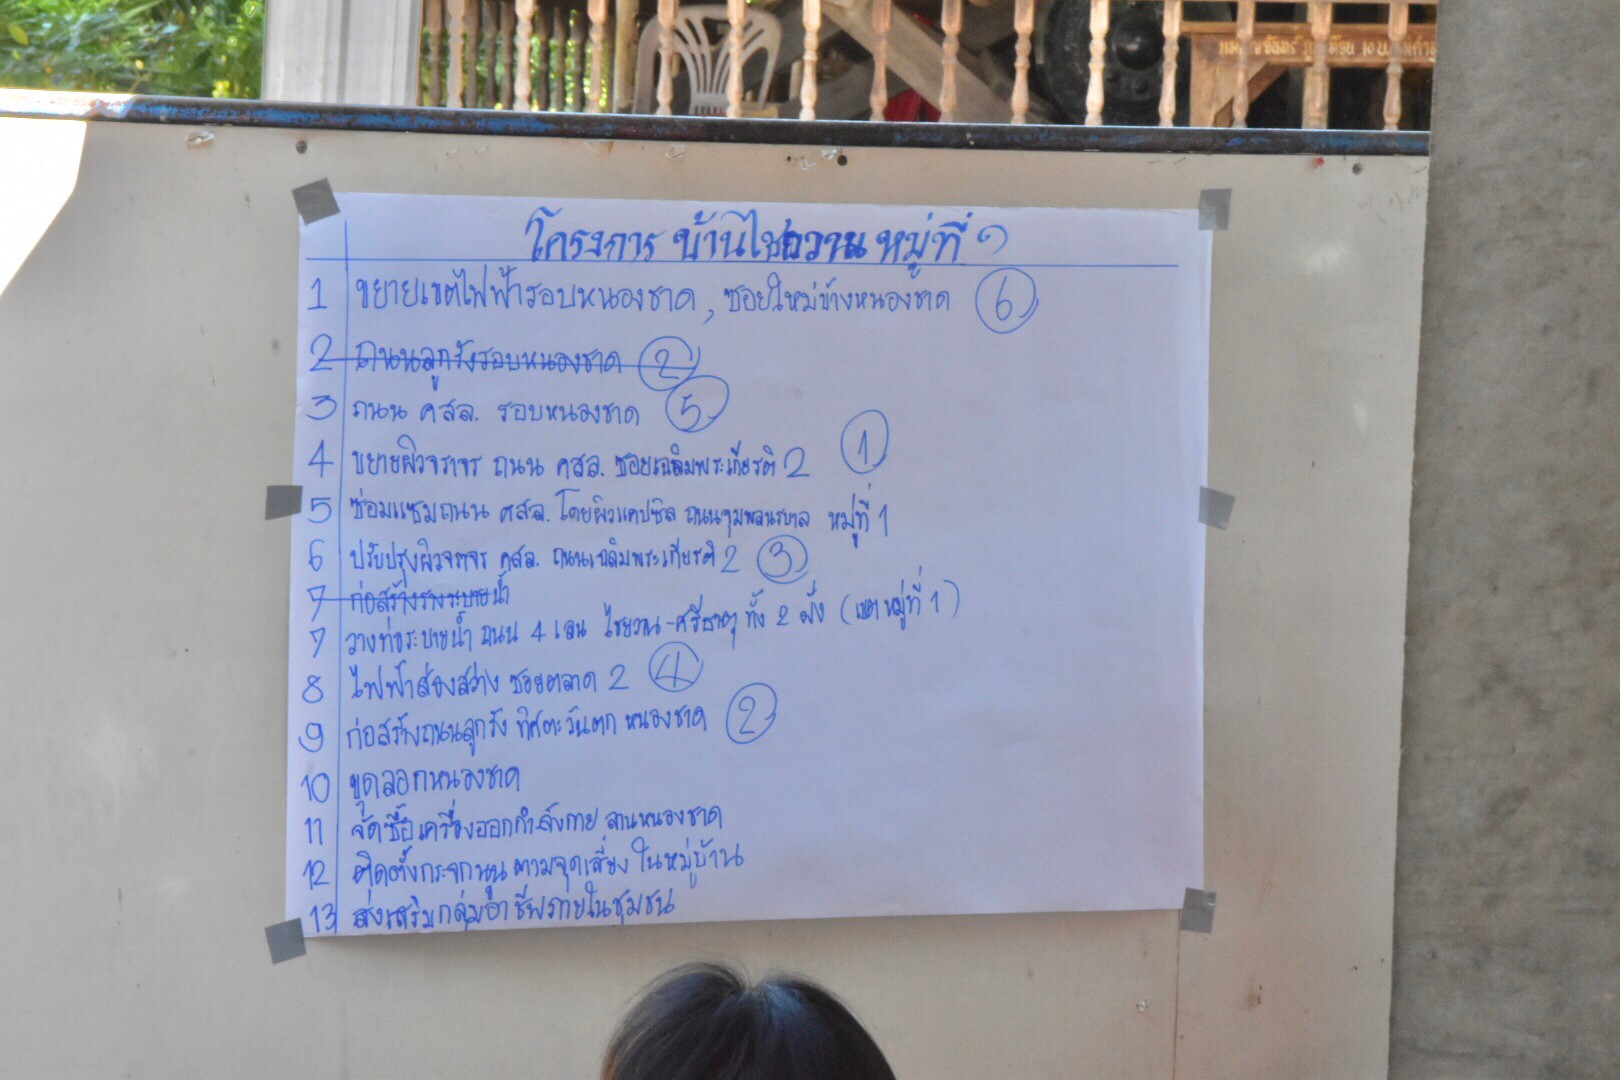 โครงการ บ้านไชยวาน หมู่ที่ ๑
1 ขยายเขตไฟฟ้ารอบหนองชาด , ซอยใหม่ข้างหนองชาด 6
2 ถนนลูกรังรอบหนองชาด 2
3 ถนน คสล. รอบหนองชาด 5
4 ขยายผิวจราจร ถนน คสล. ซอยเฉลิมพระเกียรติ 2 1
5 ซ่อมแซมถนน คสล. โดยผิวแคปซีล ถนน หมู่ที่ 1
6 ปรับปรุงผิวจราจร คสล. ถนนเฉลิมพระเกียรติ 2 3
7 ก่อสร้างรางระบายน้ำ
7 วางท่อระบายน้ำ ถนน 4 เลน ไชยวาน-ศรีธาตุ ทั้ง 2 ฝั่ง (เขตหมู่ที่ 1)
8 ไฟฟ้าส่องสว่าง ซอยตลาด 2 4
9 ก่อสร้างถนนลูกรัง ทิศตะวันตก หนองชาด 2
10 ขุดลอกหนองชาด
11 จัดซื้อเครื่องออกกำลังกาย ลานหนองชาด
12 ติดตั้งกระจกนูน ตามจุดเสี่ยง ในหมู่บ้าน
13 ส่งเสริมกลุ่มอาชีพภายในชุมชน